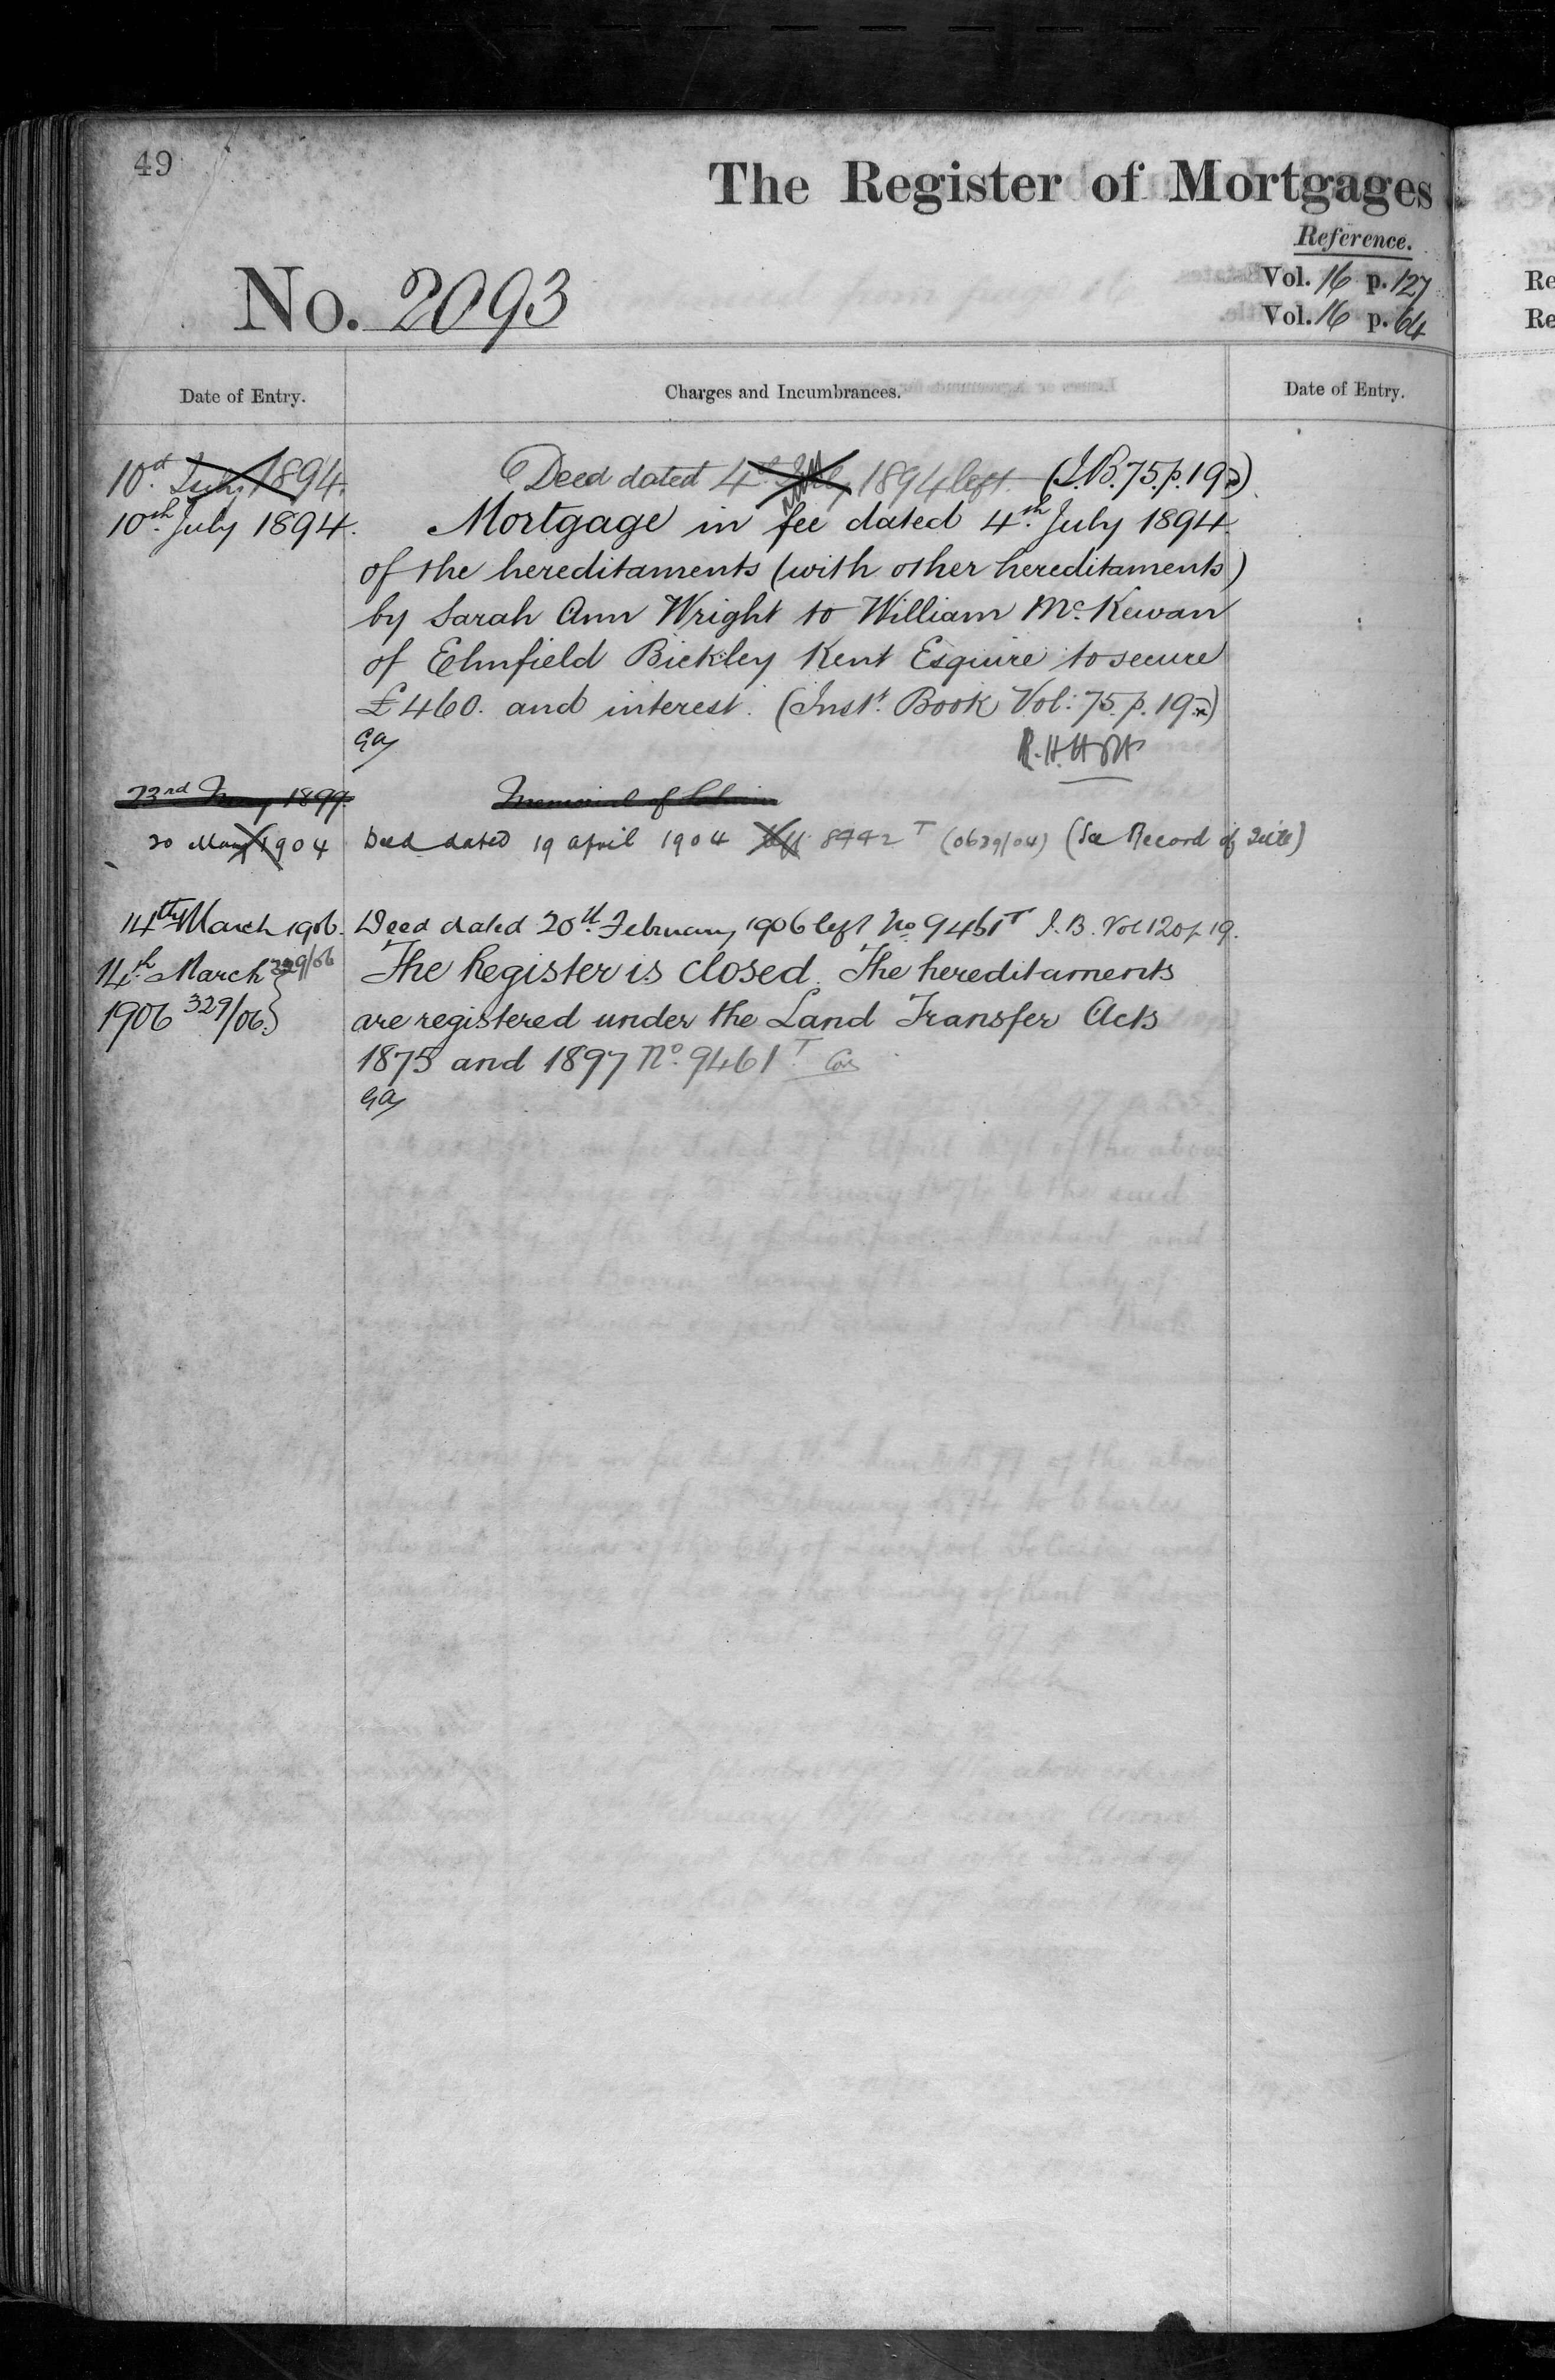 49
The Register of Mortgages
Reference.
No. 2093
Vol. 16 p. 127
Vol. 16 p. 64
Date of Entry.
Charges and Incumbrances.
Date of Entry.
10th July 1894.
Deed dated 4th July 1894 left. (I.B. 75. p. 19)
10th July 1894.
Mortgage in fee dated 4th July 1894
of the hereditaments (with other hereditaments)
by Sarah Ann Wright to William McKewan
of Elmfield Bickley Kent Esquire to secure
£460. and interest. (Inst. Book Vol: 75. p. 19)
GA
R.H.H
23rd May 1899.
Memorial of Claim
20 May 1904
Deed dated 19 April 1904 left 8442 T (0639/04) (See Record of Title)
14th March 1906.
Deed dated 20th February 1906 left No 9461T I.B. Vol 120 p 19.
14th March 329/06
The Register is closed. The hereditaments
1906 329/06.
are registered under the Land Transfer Acts
1875 and 1897 No. 9461T
GA